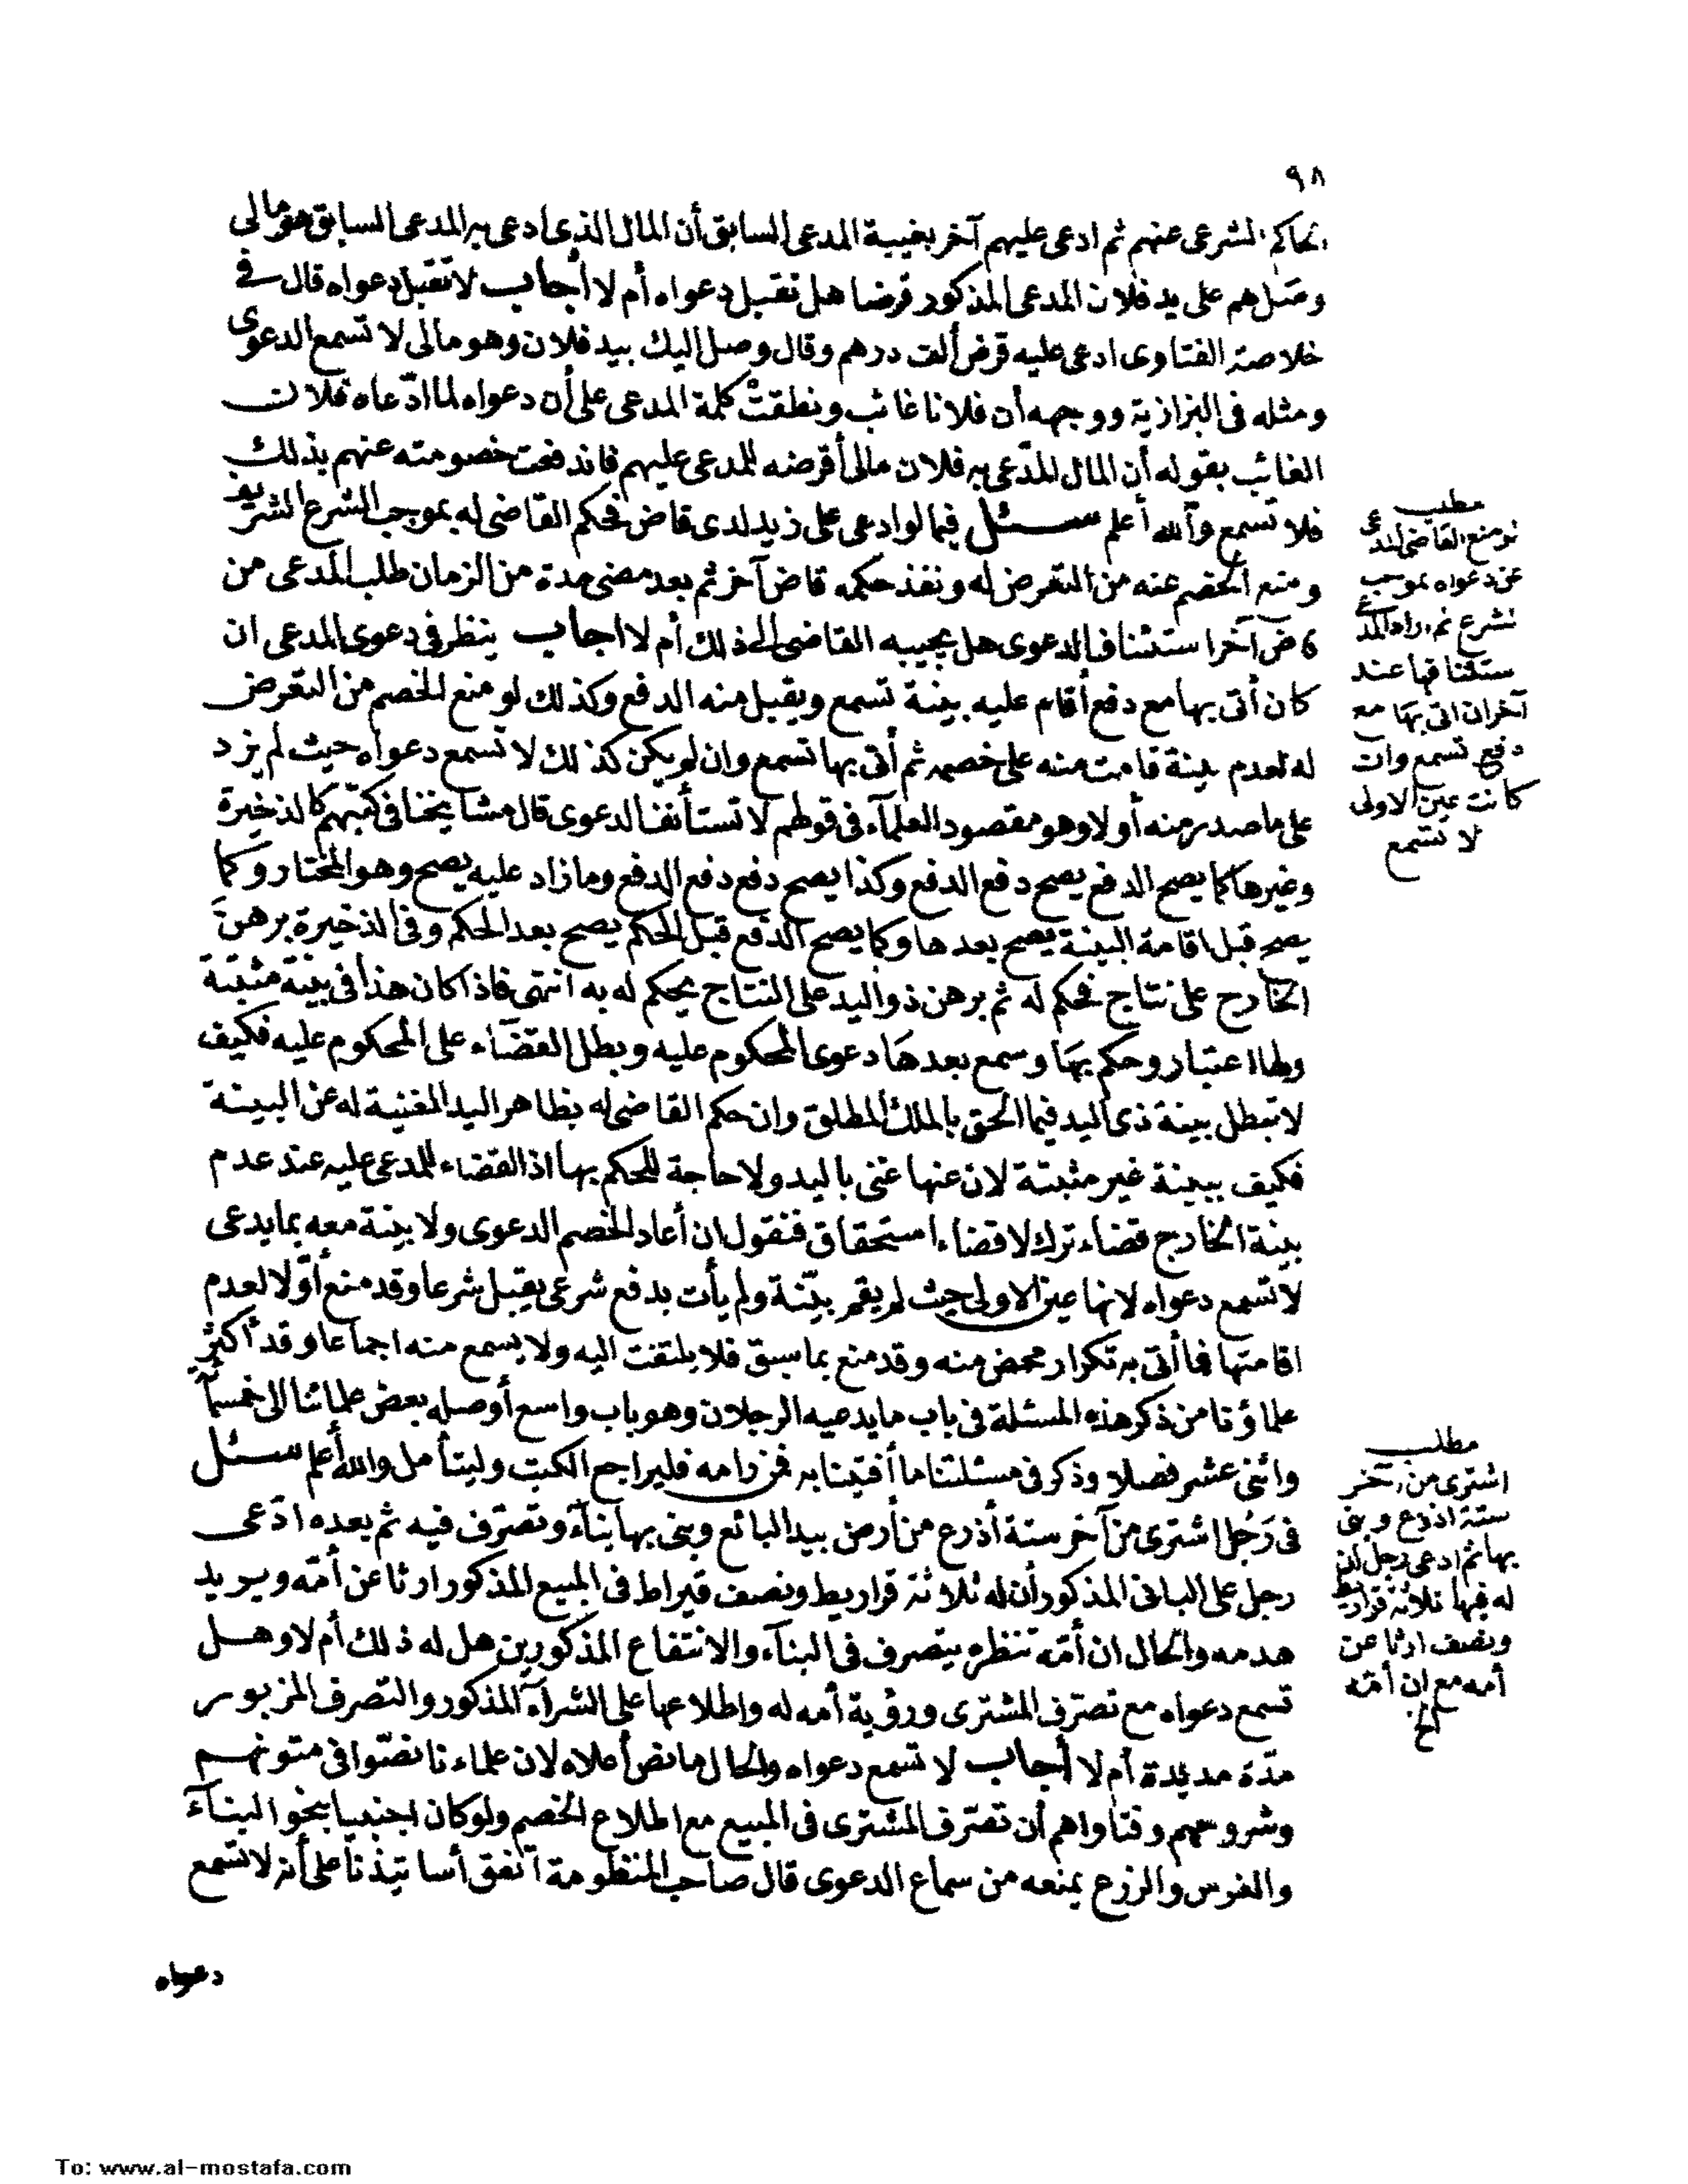 ٩٨
الحاكم الشرعى عنهم ثم ادعى عليهم آخر بغيبة المدعى السابق أن المال الذى ادعى به المدعى السابق هو مالى
وصل لهم على يد فلان المدعى المذكور قرضا هل تقبل دعواه أم لا أجاب لا تقبل دعواه قال فى
خلاصة الفتاوى ادعى عليه قرض ألف درهم وقال وصل اليك بيد فلان وهو مالى لا تسمع الدعوى
ومثله فى البزازية ووجهه أن فلانا غائب ونطقت كلمة المدعى على أن دعواه لما ادّعاه فلان
الغائب بقوله أن المال المدّعى به فلان مالى أقرضه للمدعى عليهم فاندفعت خصومته عنهم بذلك
فلا تسمع والله أعلم سئل فيما لو ادعى على زيد لدى قاض فحكم القاضى له بموجب الشرع الشريف
ومنع الخصم عنه من التعرض له ونفذ حكمه قاض آخر ثم بعد مضى مدة من الزمان طلب المدعى من
قاض آخر استئناف الدعوى هل يجيبه القاضى الى ذلك أم لا اجاب ينظر فى دعوى المدعى ان
كان أتى بها مع دفع أقام عليه بينة تسمع ويقبل منه الدفع وكذلك لو منع الخصم من التعرض
له لعدم بينة قامت منه على خصمه ثم أتى بها تسمع وان لم يكن كذلك لا تسمع دعواه حيث لم يزد
على ما صدر منه أولا وهو مقصود العلمآء فى قولهم لا تستأنف الدعوى قال مشايخنا فى كتبهم كالذخيرة
وغيرها كما يصح الدفع يصح دفع الدفع وكذا يصح دفع دفع الدفع وما زاد عليه يصح وهو المختار وكما
يصح قبل اقامة البينة يصح بعدها وكما يصح الدفع قبل الحكم يصح بعد الحكم وفى الذخيرة برهن
الخارج على نتاج فحكم له ثم برهن ذو اليد على النتاج يحكم له به انتهى فاذا كان هذا فى بينة مثبتة
ولها اعتبار وحكم بها وسمع بعدها دعوى المحكوم عليه وبطل القضآء على المحكوم عليه فكيف
لا تبطل بينة ذى اليد فيما الحق بالملك المطلق وان حكم القاضى له بظاهر اليد المغنية له عن البينة
فكيف ببينة غير مثبتة لان عنها غنى باليد ولا حاجة للحكم بها اذ القضاء للمدعى عليه عند عدم
بينة الخارج قضاء ترك لا قضاء استحقاق فنقول ان أعاد الخصم الدعوى ولا بينة معه بما يدعى
لا تسمع دعواه لانها عين الاولى حيث لم يقم بيّنة ولم يأت بدفع شرعى يقبل شرعا وقد منع أوّلا لعدم
اقامتها فما أتى به تكرار محض منه وقد منع بما سبق فلا يلتفت اليه ولا يسمع منه اجماعا وقد أكثر
علماؤنا من ذكر هذه المسئلة فى باب ما يدعيه الرجلان وهو باب واسع أوصله بعض علمائنا الى خمسمآئة
واثنى عشر فصلا وذكر فى مسئلتنا ما أفتينا به فمن رامه فليراجع الكتب وليتأمل والله أعلم سئل
فى رَجُل اشترى من آخر ستة أذرع من أرض بيد البائع وبنى بها بنآء وتصرّف فيه ثم بعده ادّعى
رجل على البانى المذكور أن له ثلاثة قراريط ونصف قيراط فى المبيع المذكور ارثا عن أمّه ويريد
هدمه والحال ان أمّه تنظره يتصرف فى البنآء والانتفاع المذكورين هل له ذلك أم لا وهل
تسمع دعواه مع تصرّف المشترى ورؤية أمه له واطلاعها على الشرآء المذكور والتصرف المزبور
مدّة مديدة أم لا أجاب لا تسمع دعواه والحال ما نص أعلاه لان علماءنا نصّوا فى متونهم
وشروحهم وفتاواهم أن تصرّف المشترى فى المبيع مع اطلاع الخصم ولو كان اجنبيا بنحو البنآء
والغرس والزرع يمنعه من سماع الدعوى قال صاحب المنظومة اتفق أساتيذنا على أنه لا تسمع
دعواه
مطلب
لو منع القاضى المدعى
عن دعواه بموجب
الشرع ثم اراد المدعى
استئنافها عند
آخر ان اتى بها مع
دفع تسمع وان
كانت عين الاولى
لا تسمع
مطلب
اشترى من آخر
ستة اذرع وبنى
بها ثم ادعى رجل ان
له فيها ثلاثة قراريط
ونصف ارثا عن
أمه مع ان أمّه
الخ
To: www.al-mostafa.com